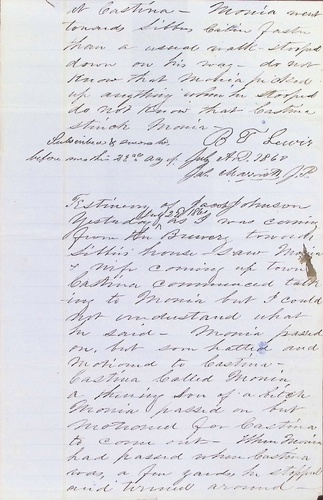 at Castina – Monia went
toward Sibbis Cabin faster
than a usual walk – stooped
down on his way – do not
know that Monia picked
up anything when he stooped
do not know that Castina
struck Monia
Subscribed & sworn to B T Lewis
before me this 28th day of July A.D. 1860
Jas J.P.
Testimony of Jacob Johnson
July 27th 1860
Yesterday as I was coming
from the Brewery toward
Sibbis house – Saw Monia
& wife coming up town
Castina commenced talk
ing to Monia but I could
not understand what
he said – Monia passed
on, but soon halted and
motioned to Castina –
Castina Called Monia
a thieving Son of a bitch
Monia passed on but
motioned for Castina
to come out – When Monia
had passed when Castina
was, a few yards, he stopped
and turned around –